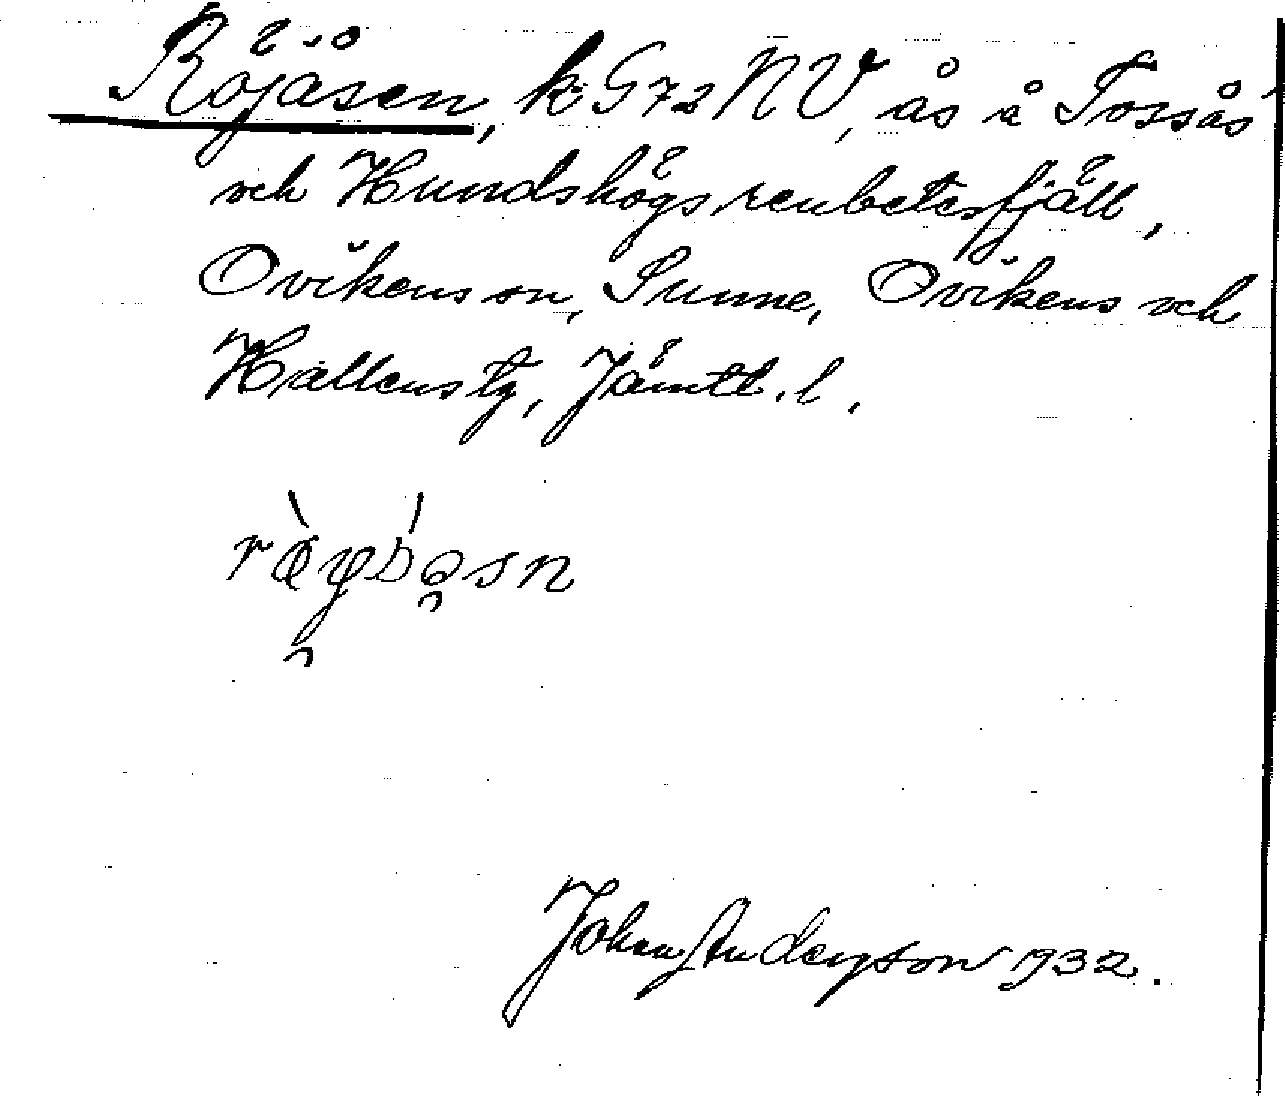 Röjåsen, k G 72 NV, ås å Tossås
och Hundshögs renbetesfjäll,
Ovikens sn, Sunne, Ovikens och
Hallens tg, Jämtl. l.
Johan Anderson 1932.